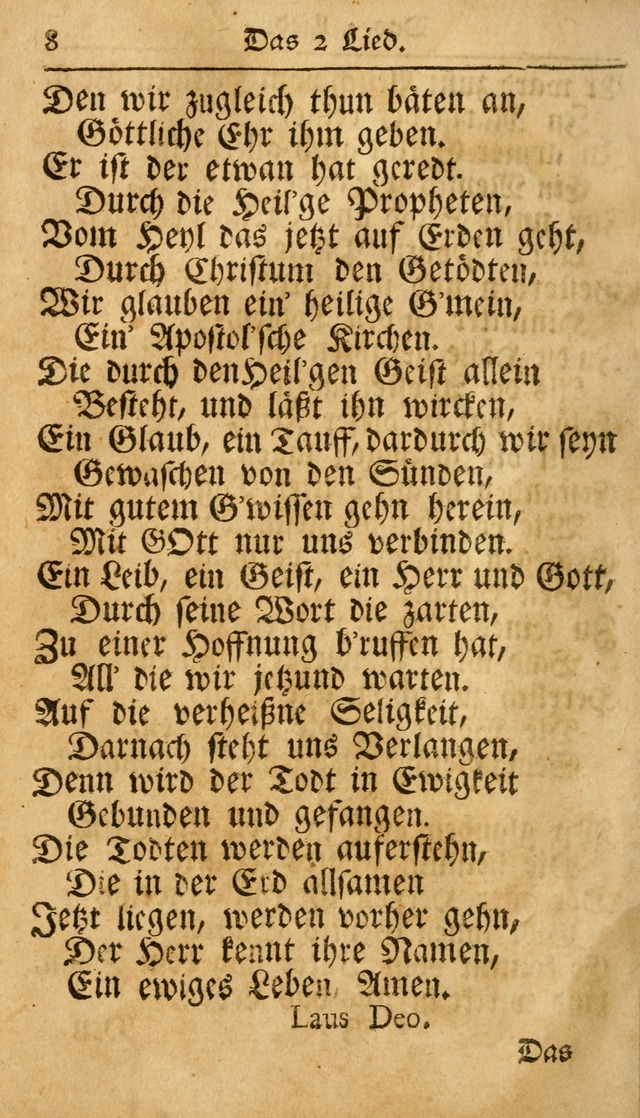 8 Das 2 Lied.
Den wir zugleich thun bäten an,
Göttliche Ehr ihm geben.
Er ist der etwan hat geredt.
Durch die Heil'ge Propheten,
Vom Heyl das jetzt auf Erden geht,
Durch Christum den Getödten,
Wir glauben ein' heilige G'mein,
Ein' Apostol'sche Kirchen.
Die durch den Heil'gen Geist allein
Besteht, und läßt ihn wircken,
Ein Glaub, ein Tauff, dardurch wir seyn
Gewaschen von den Sünden,
Mit gutem G'wissen gehn herein,
Mit GOtt nur uns verbinden.
Ein Leib, ein Geist, ein Herr und Gott,
Durch seine Wort die zarten,
Zu einer Hoffnung b'ruffen hat,
All' die wir jetzund warten.
Auf die verheißne Seligkeit,
Darnach steht uns Verlangen,
Denn wird der Todt in Ewigkeit
Gebunden und gefangen.
Die Todten werden auferstehn,
Die in der Erd allsamen
Jetzt liegen, werden vorher gehn,
Der Herr kennt ihre Namen,
Ein ewiges Leben, Amen.
Laus Deo.
Das